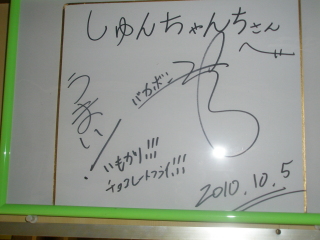 しゅんちゃんちさん
へ
うまい!
バカボン
いもかり!!!
チョコレートフライ!!!
2010.10.5